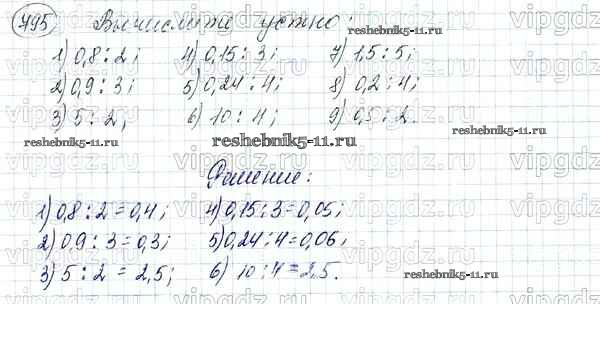 795 Вычислите устно:
1) 0,8 : 2; 4) 0,15 : 3; 7) 1,5 : 5;
2) 0,9 : 3; 5) 0,24 : 4; 8) 0,2 : 4;
3) 5 : 2; 6) 10 : 4; 9) 0,5 : 2.
Решение:
1) 0,8 : 2 = 0,4; 4) 0,15 : 3 = 0,05;
2) 0,9 : 3 = 0,3; 5) 0,24 : 4 = 0,06;
3) 5 : 2 = 2,5; 6) 10 : 4 = 2,5.
reshebnik5-11.ru
reshebnik5-11.ru
reshebnik5-11.ru
reshebnik5-11.ru
reshebnik5-11.ru
vipgdz.ru